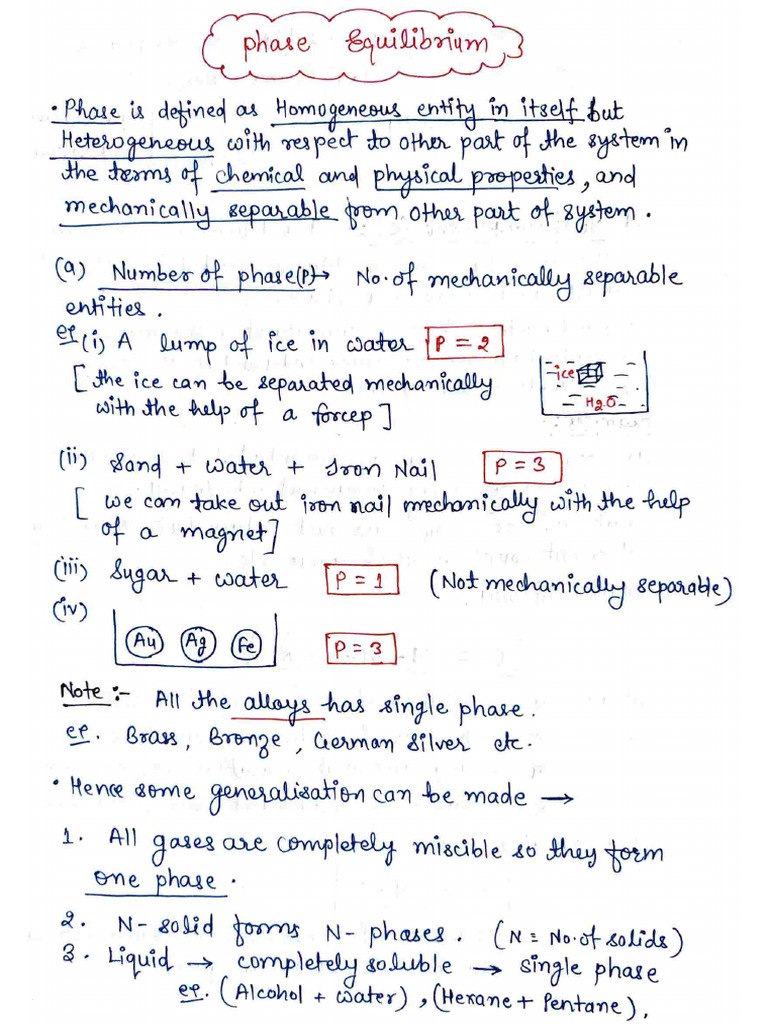 Phase Equilibrium
• Phase is defined as Homogeneous entity in itself but
Heterogeneous with respect to other part of the system in
the terms of chemical and physical properties, and
mechanically separable from other part of system.
(a) Number of phase(P)→ No. of mechanically separable
entities.
eg (i) A lump of ice in water P = 2
[the ice can be separated mechanically
with the help of a forcep]
ice
H2O
(ii) Sand + water + Iron Nail P = 3
[ we can take out iron nail mechanically with the help
of a magnet]
(iii) Sugar + water P = 1 (Not mechanically separable)
(iv) Au Ag Fe P = 3
Note :- All the alloys has single phase.
eg. Brass, Bronze, German Silver etc.
• Hence some generalisation can be made →
1. All gases are completely miscible so they form
one phase.
2. N- solid forms N- phases. (N = No. of solids)
3. Liquid → completely soluble → single phase
eg. (Alcohol + water), (Hexane + Pentane),